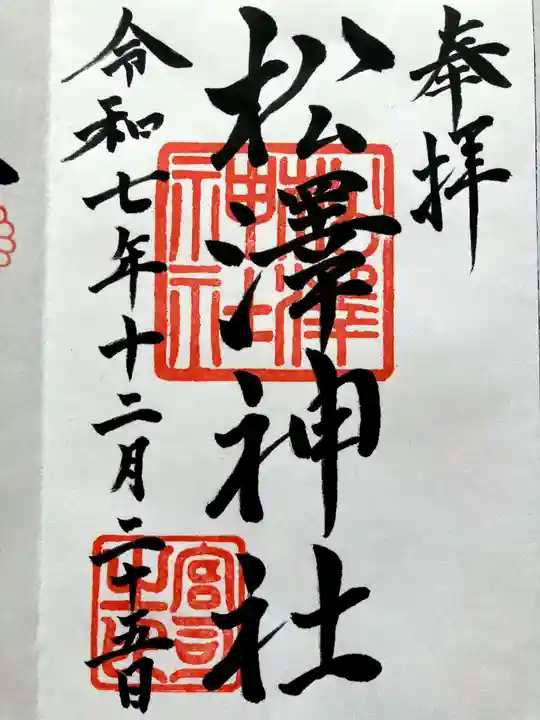 奉拝
松澤神社
令和七年十二月二十五日
松澤
神社